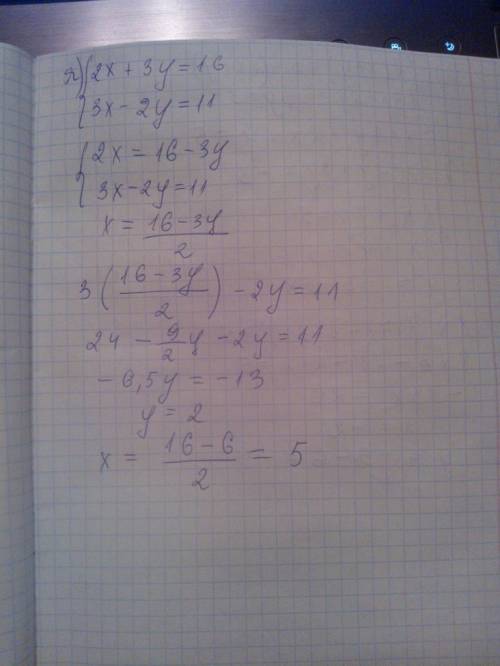 я) { 2x + 3y = 16
3x - 2y = 11
{ 2x = 16 - 3y
3x - 2y = 11
x = (16 - 3y)/2
3 ( (16 - 3y)/2 ) - 2y = 11
24 - 9/2 y - 2y = 11
- 6,5y = -13
y = 2
x = (16 - 6)/2 = 5